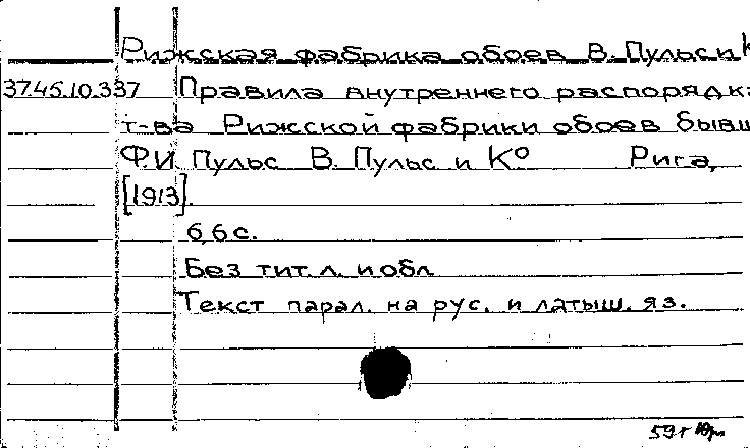 Рижская фабрика обоев В. Пульс и К
37.45.10.337 Правила внутреннего распорядка
т-ва Рижской фабрики обоев бывш
Ф.И. Пульс В. Пульс и К° Рига,
[1913].
6,6 с.
Без тит. л. и обл
Текст парал. на рус. и латыш. яз.
59 г